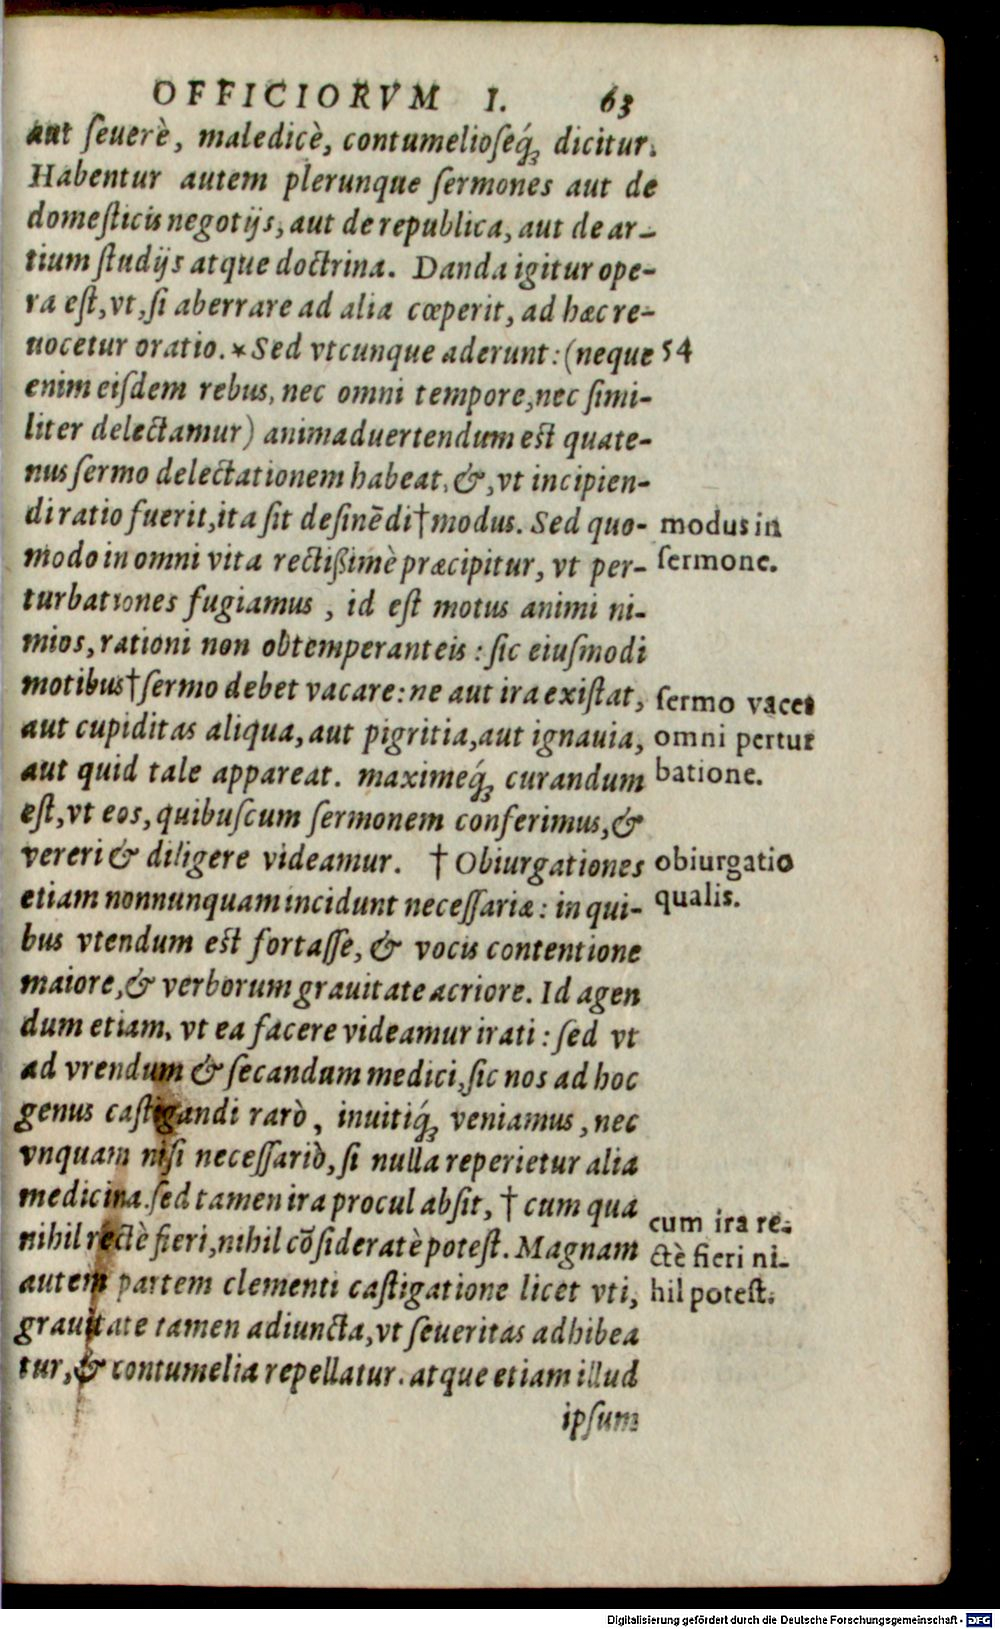 OFFICIORVM I. 63
aut ſeuerè, maledicè, contumelioſeq́; dicitur.
Habentur autem plerunque ſermones aut de
domeſticis negotijs, aut de republica, aut de ar-
tium ſtudijs atque doctrina. Danda igitur ope-
ra eſt, vt, ſi aberrare ad alia cœperit, ad hæc re-
uocetur oratio. * Sed vtcunque aderunt: (neque 54
enim eiſdem rebus, nec omni tempore, nec ſimi-
liter delectamur) animaduertendum eſt quate-
nus ſermo delectationem habeat, &, vt incipien-
di ratio fuerit, ita ſit deſinēdi † modus. Sed quo-
modus in
modo in omni vita rectißimè præcipitur, vt per-
ſermone.
turbationes fugiamus, id eſt motus animi ni-
mios, rationi non obtemperanteis: ſic eiuſmodi
motibus † ſermo debet vacare: ne aut ira exiſtat,
ſermo vacet
aut cupiditas aliqua, aut pigritia, aut ignauia,
omni pertur
aut quid tale appareat. maximeq́; curandum
batione.
eſt, vt eos, quibuſcum ſermonem conferimus, &
vereri & diligere videamur. † Obiurgationes
obiurgatio
etiam nonnunquam incidunt neceſſariæ: in qui-
qualis.
bus vtendum eſt fortaſſe, & vocis contentione
maiore, & verborum grauitate acriore. Id agen
dum etiam, vt ea facere videamur irati: ſed vt
ad vrendum & ſecandum medici, ſic nos ad hoc
genus caſtigandi rarò, inuitiq́; veniamus, nec
vnquam niſi neceſſariò, ſi nulla reperietur alia
medicina. ſed tamen ira procul abſit, † cum qua
cum ira re-
nihil rectè fieri, nihil cōſideratè poteſt. Magnam
ctè fieri ni-
autem partem clementi caſtigatione licet vti,
hil poteſt.
grauitate tamen adiuncta, vt ſeueritas adhibea
tur, & contumelia repellatur. atque etiam illud
ipſum
Digitalisierung gefördert durch die Deutsche Forschungsgemeinschaft - DFG